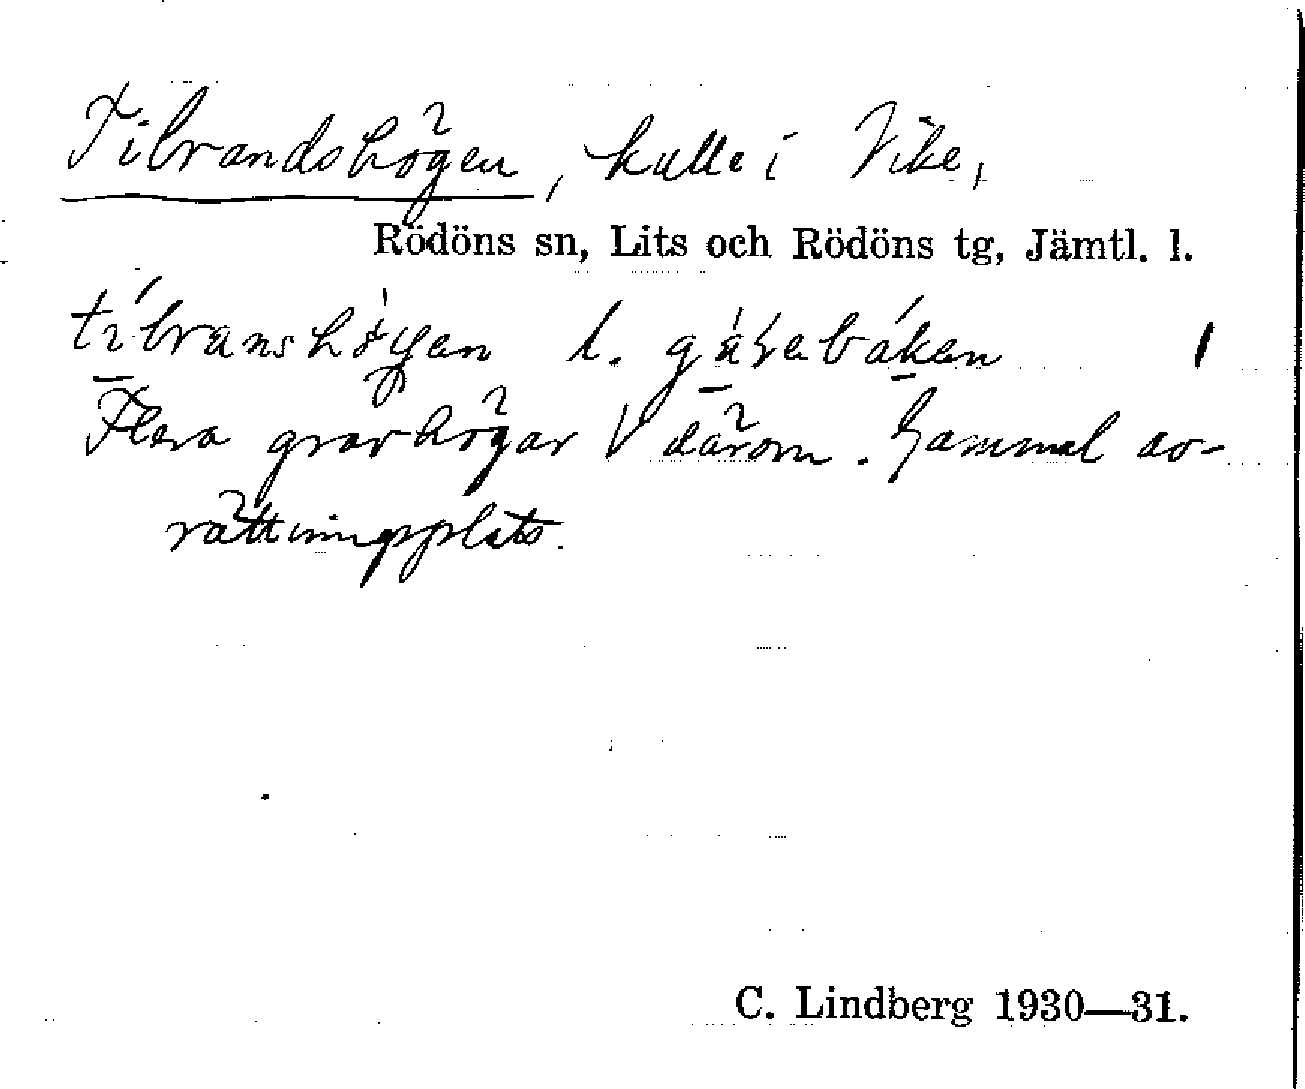 Tibrandshögen, kulle i Vike,
Rödöns sn, Lits och Rödöns tg, Jämtl. l.
tíbranshø̀gen l.
Flera gravhögar V därom. Gammal av-
rättningsplats.
C. Lindberg 1930—31.